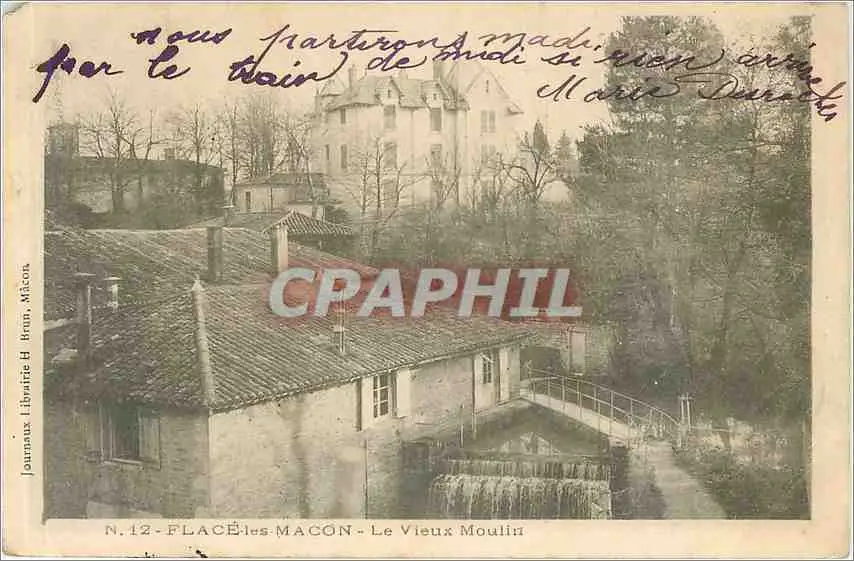 nous partirons mardi si rien arrive
par le train de midi
Marie
CPARHIL
Journaux Librairie H Brun, Mâcon.
N. 12 - FLACÉ-les MACON - Le Vieux Moulin